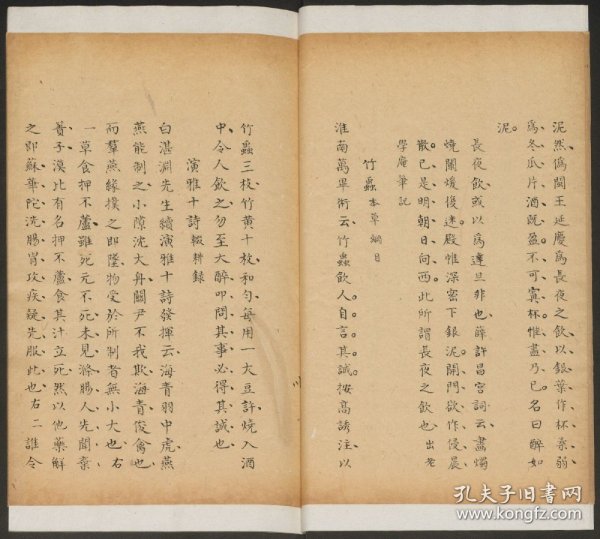 泥然偽閩王延慶為長夜之飲以銀葉作杯柔弱
為冬瓜片酒既盈不可寘杯惟盡乃已名曰醉如
泥
長夜飲或以為達旦非也薛許昌宮詞云畫燭
燒闌煖復迷殿帷深密下銀泥開門欲作侵晨
散已是明朝日向西此所謂長夜之飲也 出老
學庵筆記
竹蟲 本草綱目
淮南萬畢術云竹蟲飲人自言其誠按高誘注以
竹蟲三枚竹黃十枚和勻每用一大豆許燒入酒
中令人飲之勿至大醉叩問其事必得其誠也
演雅十詩 輟耕錄
白湛淵先生續演雅十詩發揮云海青羽中虎燕
燕能制之小隙沈大舟關尹不我欺海青俊禽也
而羣燕緣撲之即墜物受於所制者無小大也右
一草食押不蘆雖死元不死未見滌腸人先聞棄
簣子漠北有名押不蘆食其汁立死然以他藥解
之即蘇華陀洗腸胃攻疾疑先服此也右二誰令
孔夫子旧书网
www.kongfz.com